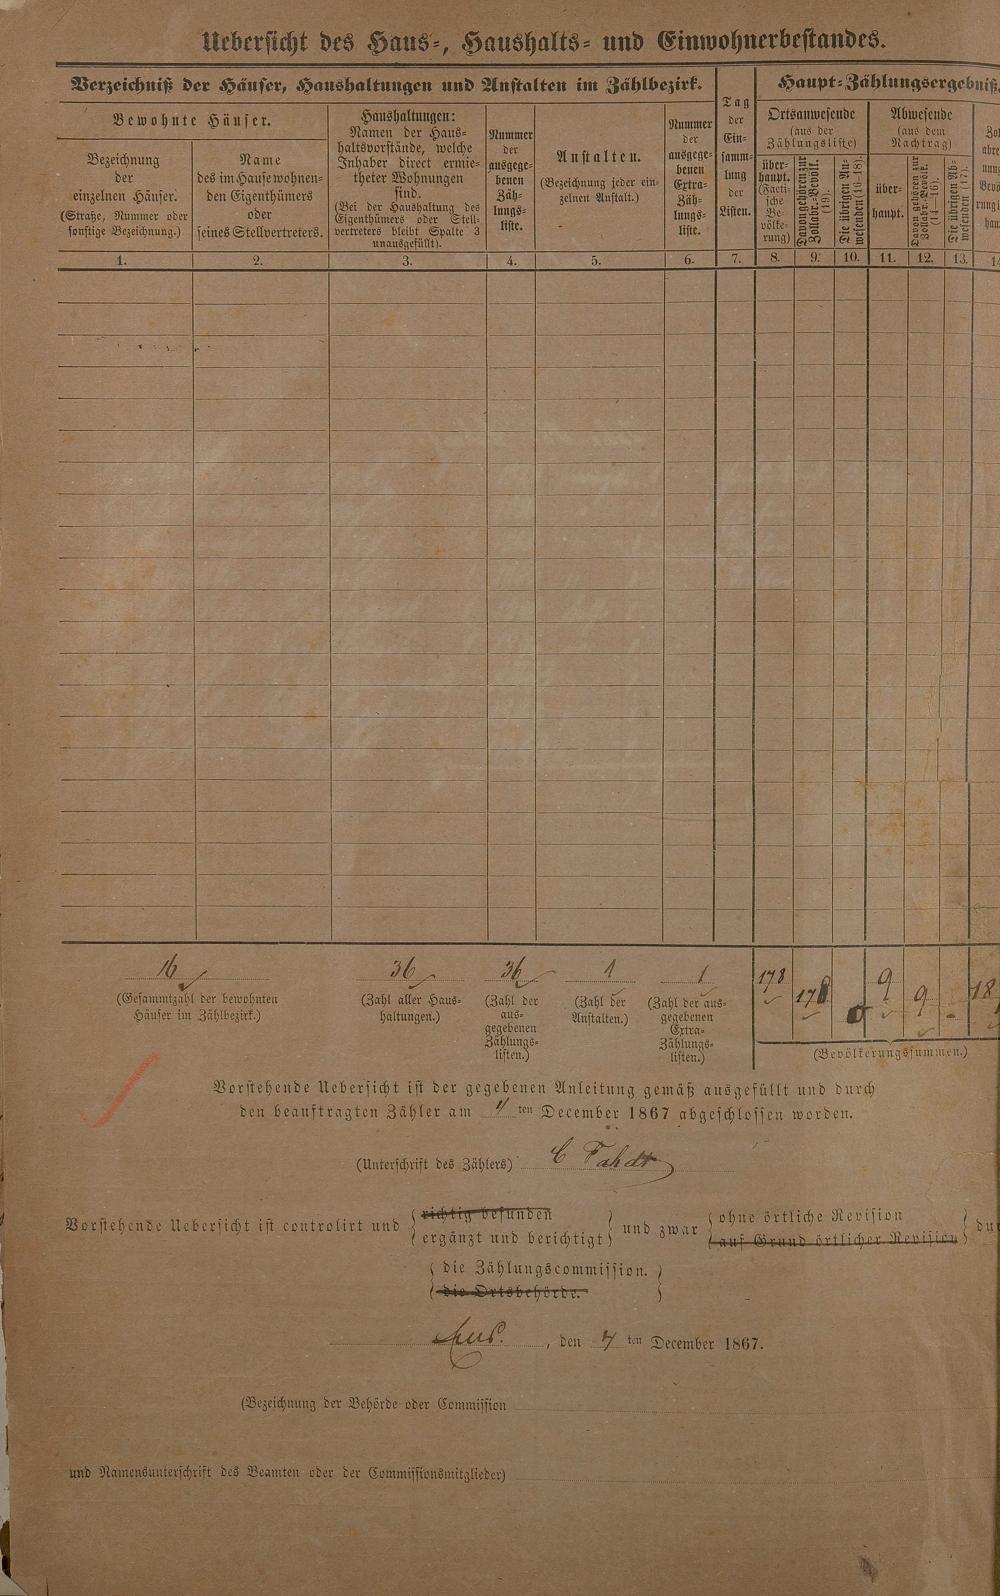 Uebersicht des Haus-, Haushalts- und Einwohnerbestandes.
Verzeichniß der Häuser, Haushaltungen und Anstalten im Zählbezirk.
Bewohnte Häuser.
Bezeichnung
der
einzelnen Häuser.
(Straße, Nummer oder
sonstige Bezeichnung.)
Name
des im Hause wohnen-
den Eigenthümers
oder
seines Stellvertreters.
Haushaltungen:
Namen der Haus-
haltsvorstände, welche
Inhaber direct ermie-
theter Wohnungen
sind.
(Bei der Haushaltung des
Eigenthümers oder Stell-
vertreters bleibt Spalte 3
unausgefüllt).
Nummer
der
ausgege-
benen
Zäh-
lungs-
liste.
Anstalten.
(Bezeichnung jeder ein-
zelnen Anstalt.)
Nummer
der
ausgege-
benen
Extra-
Zäh-
lungs-
liste.
Tag
der
Ein-
samm-
lung
der
Listen.
Haupt-Zählungsergebniß.
Ortsanwesende
(aus der
Zählungsliste)
über-
haupt.
(Facti-
sche
Be-
völke-
rung)
Davon gehören zur
Zollabr.-Bevölk.
(19).
Die übrigen An-
wesenden (16–18).
Abwesende
(aus dem
Nachtrag)
über-
haupt.
Davon gehören zur
Zollabr.-Bevölk.
(14–16).
Die übrigen Ab-
wesenden (17).
1. 2. 3. 4. 5. 6. 7. 8. 9. 10. 11. 12. 13.
16 36 36 1 1 178 178 0 9 9 -
(Gesammtzahl der bewohnten
Häuser im Zählbezirk.)
(Zahl aller Haus-
haltungen.)
(Zahl der
aus-
gegebenen
Zählungs-
listen.)
(Zahl der
Anstalten.)
(Zahl der aus-
gegebenen
Extra-
Zählungs-
listen.)
(Bevölkerungssummen.)
Vorstehende Uebersicht ist der gegebenen Anleitung gemäß ausgefüllt und durch
den beauftragten Zähler am 4 ten December 1867 abgeschlossen worden.
(Unterschrift des Zählers) C Fahdt
Vorstehende Uebersicht ist controlirt und
richtig befunden
ergänzt und berichtigt
und zwar
ohne örtliche Revision
auf Grund örtlicher Revision
die Zählungscommission.
die Ortsbehörde.
, den 7 ten December 1867.
(Bezeichnung der Behörde oder Commission
und Namensunterschrift des Beamten oder der Commissionsmitglieder)